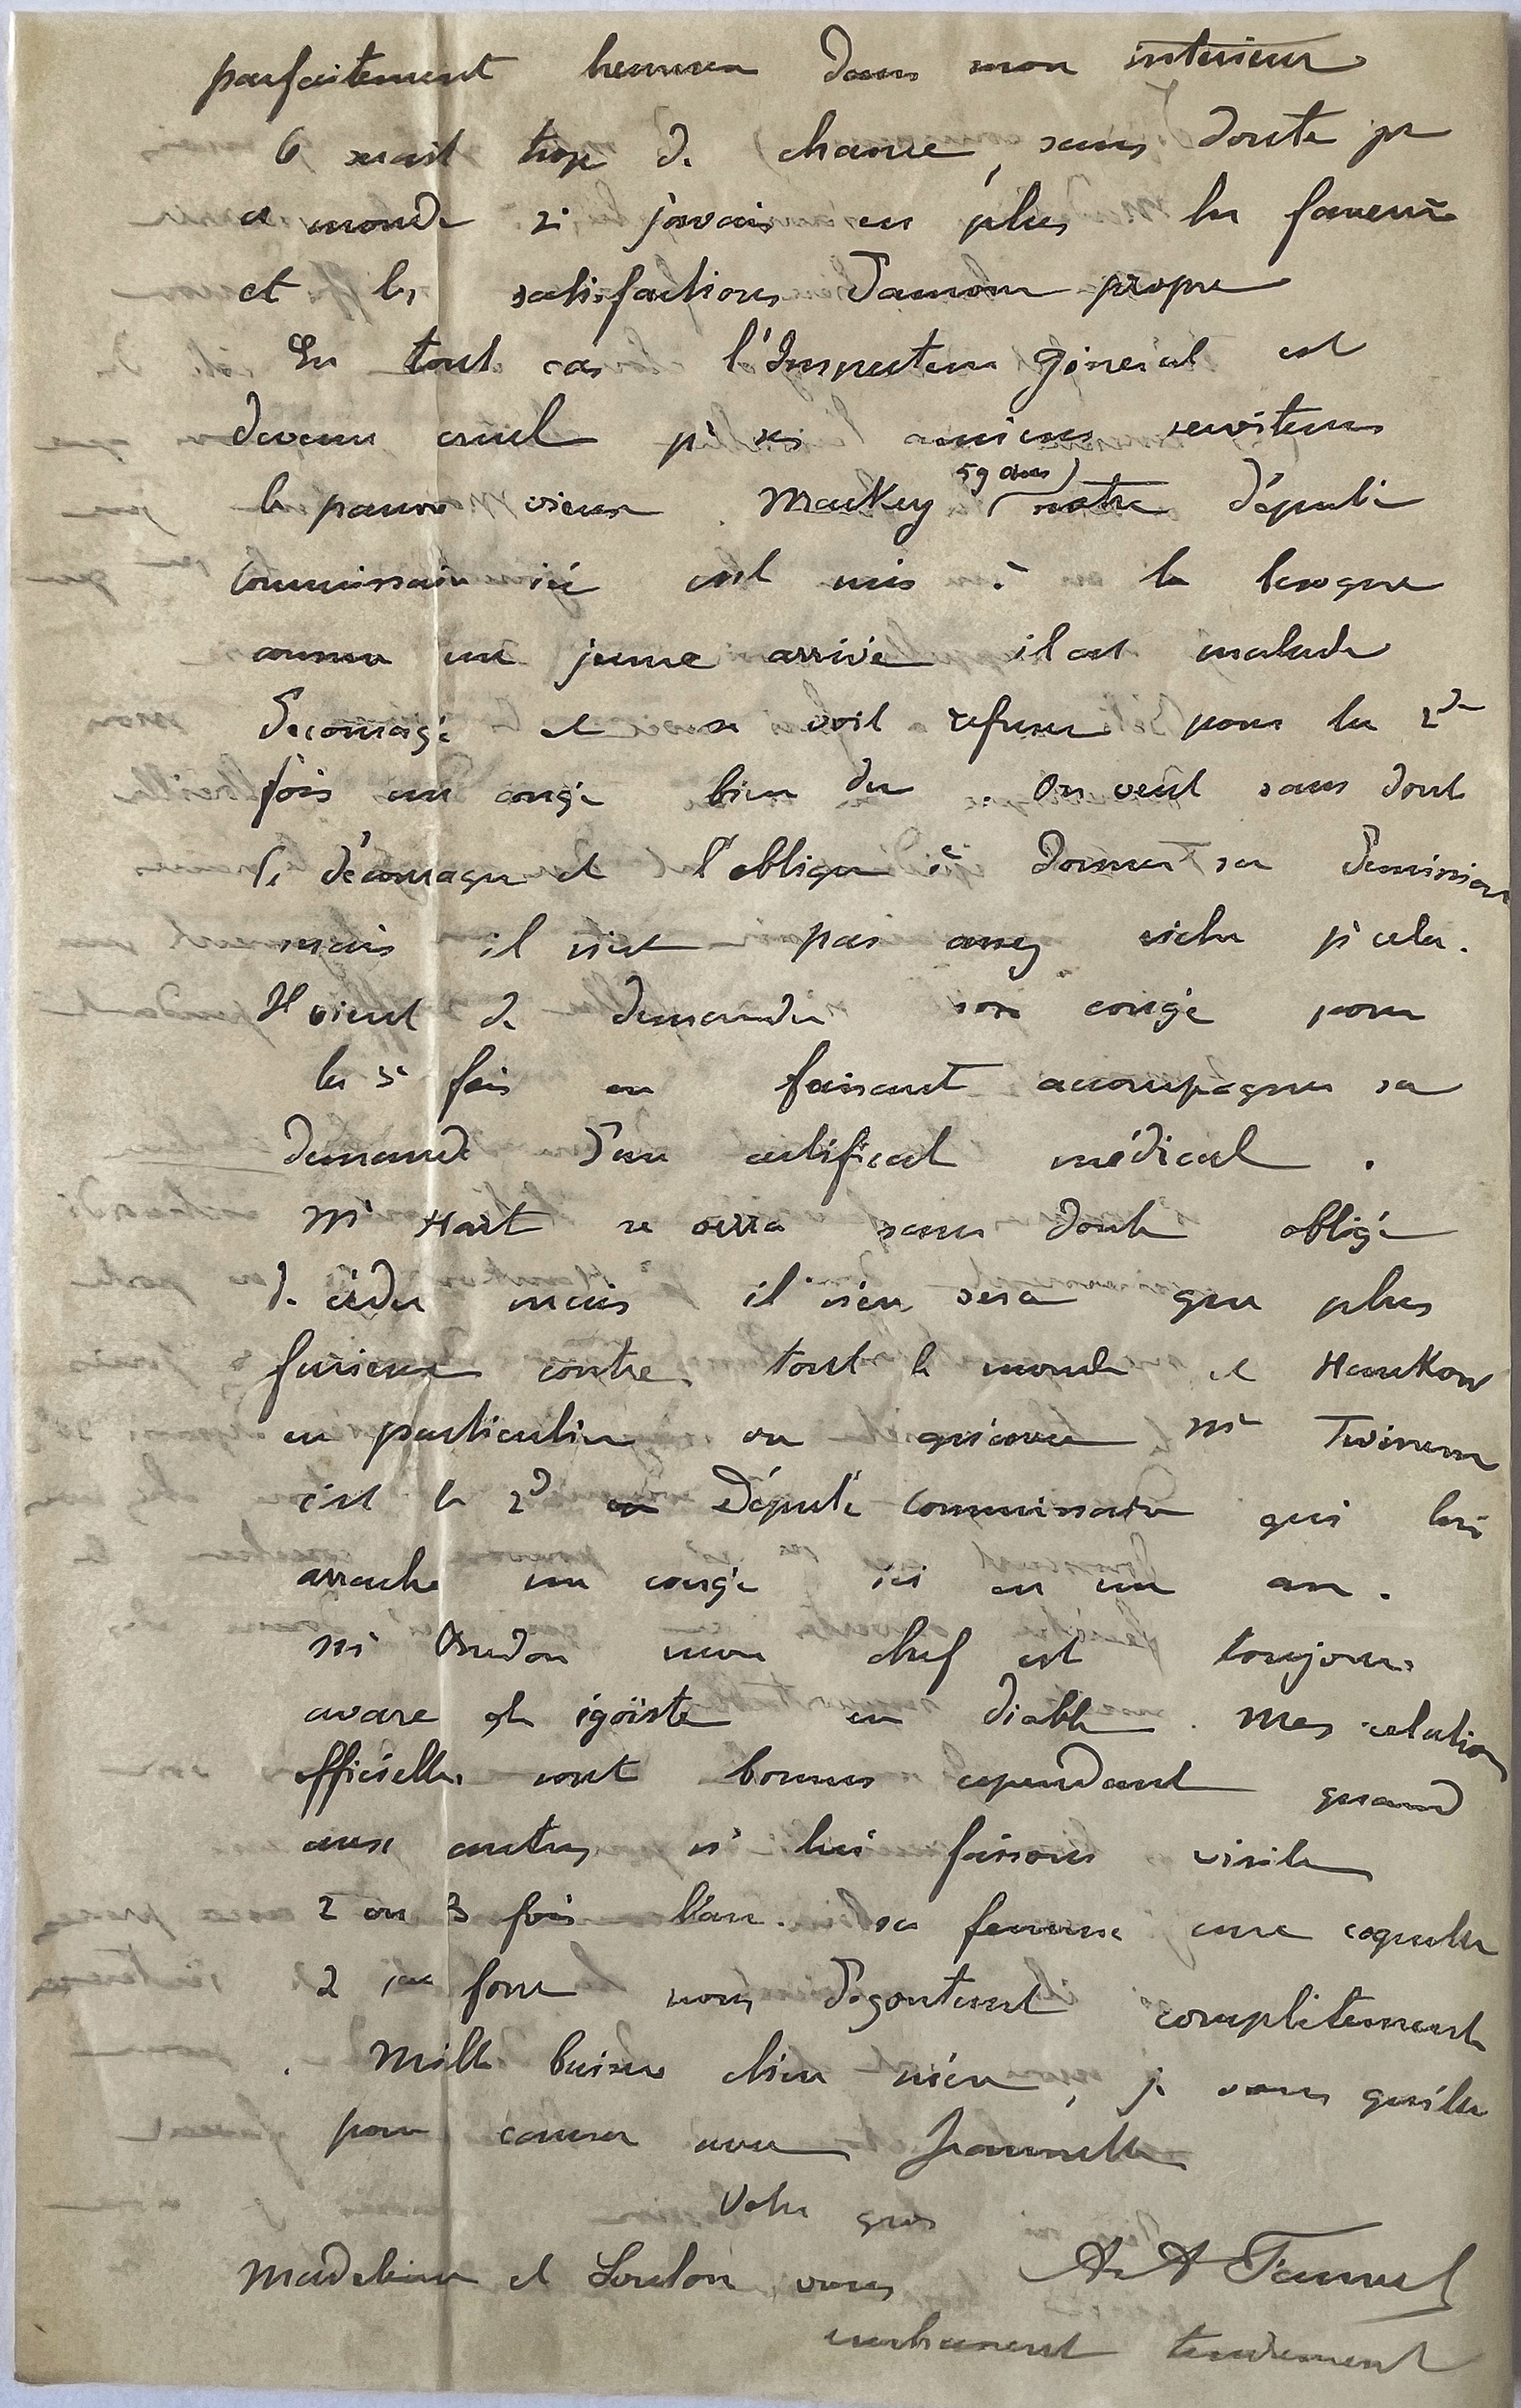 parfaitement heureux dans mon interieur
Ce serait trop de chance, sans doute pr
ce monde si j'avais en plus les faveurs
et les satisfactions d'amour propre
En tout cas l'Inspecteur Géneral est
devenu cruel pr ses anciens serviteurs
le pauvre vieux Mackey (59 ans) notre député
Commissaire ici est mis à la besogne
comme un jeune arrivé il est malade
decouragé et se voit refuser pour la 2de
fois un congé bien du. On veut sans dout
le décourager et l'obliger à donner sa demission
mais il n'est pas assez riche pr cela.
Il vient de demander son congé pour
la 3e fois en faisant accompagner sa
demande d'un certificat médical.
Mr Hart se verra sans doute obligé
de céder mais il n'en sera que plus
furieux contre tout le monde et Hankow
en particulier ou
Mr Twinem
c'est le 2d Député Commissaire qui lui
arrache un congé ici en un an.
Mr mon chef est toujours
avare et égoïste en diable. Mes relations
officielles sont bonnes cependant quand
aux autres ns lui faisons visite
2 ou 3 fois l'an. sa femme une coquette
2 nous dégoutent complètement
Mille baisers chère mère, je vous quitte
pour causer avec Jeannette
Votre gros
A. A Fauvel
Madeleine et Loulou vous
embrassent tendrement